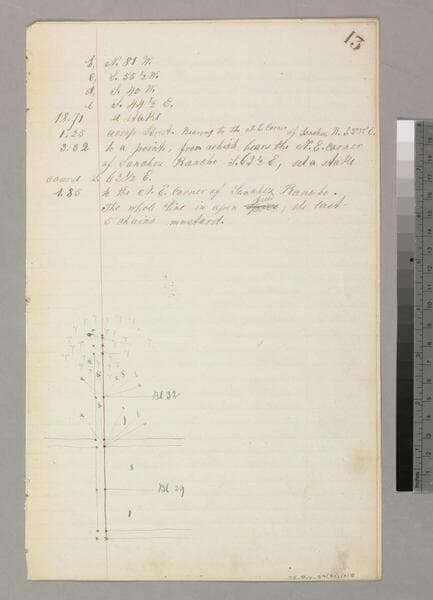 13
b, N. 81 W.
c, S. 55½ W.
d, S. 40 W.
e S. 44½ E.
18.71 a stake
1.25 across Street. Bearing to the N.E. Corner of Sanchez
3.32 to a point, from which bears the N.E. Corner
of Sanchez Rancho S. 62½ E, set a stake
course S. 62½ E.
4.85 to the N.E. Corner of Sanchez Rancho.
The whole line in open field, the last
5 chains mustard.
Bl 32
1
8
Bl 29
1